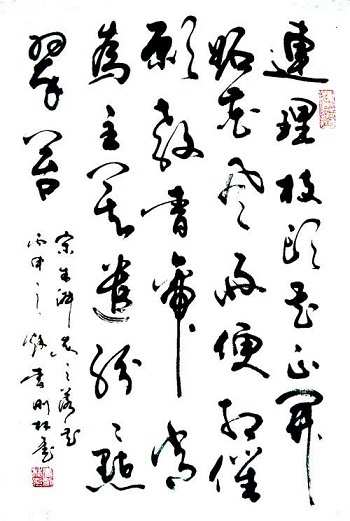 連理枝頭花正開
妬花風雨便相催
願教青帝常
為主莫遣紛々點
翠苔
宋朱淑真之落花
丙申之秋